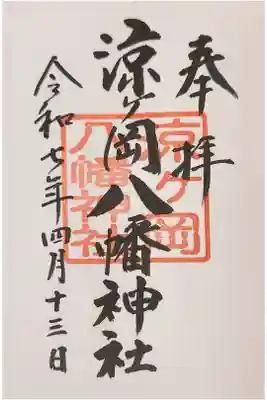 奉拝
涼ヶ岡八幡神社
京ヶ岡
八幡神社
令和七年四月十三日